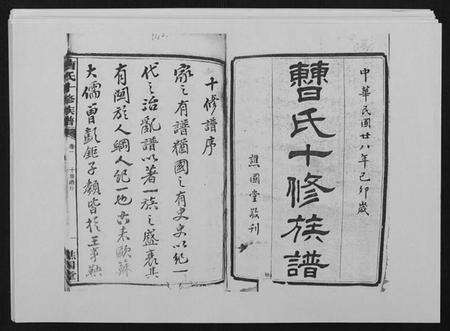 中華民國廿八年己卯歲
曹氏十修族譜
譙國堂敬刊
十修譜序
家之有譜猶國之有史史以紀一
代之治亂譜以著一族之盛衰其
有關於人綱人紀一也古來歐蘇
大儒曾彭鉅子類皆於
曹氏十修族譜
卷一
譙國堂